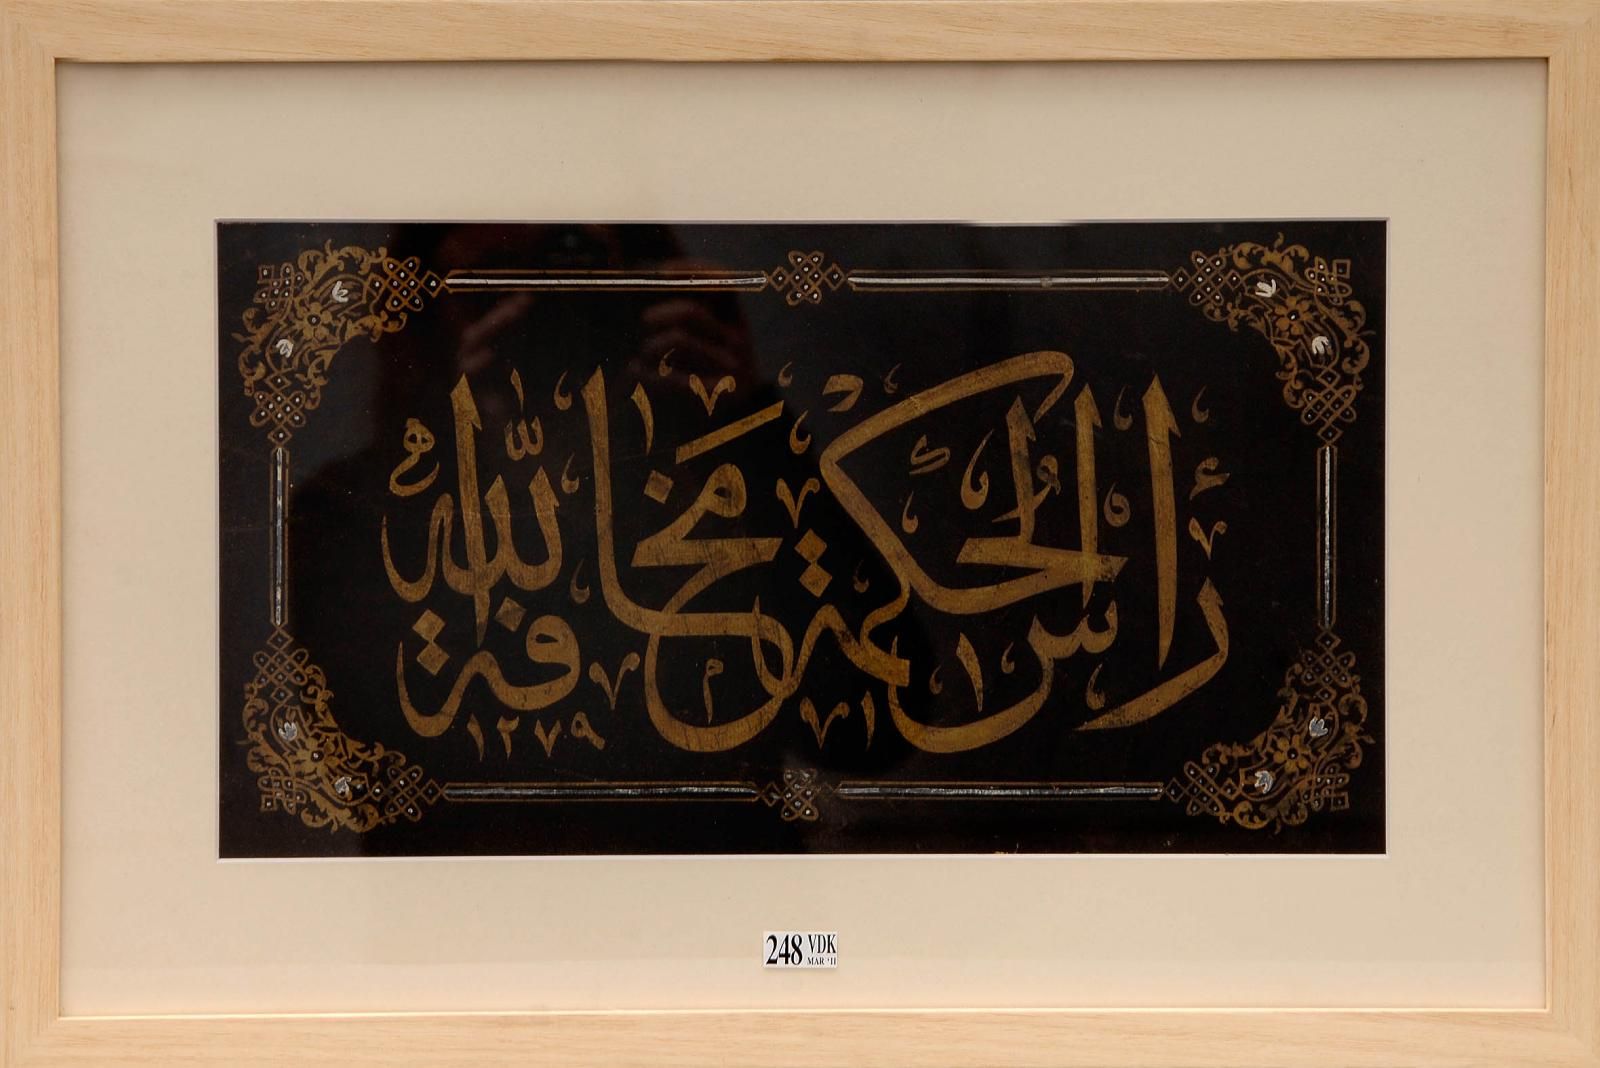 رأس الحكمة مخافة الله
١٢٧٩
248 VDK
MAR '11